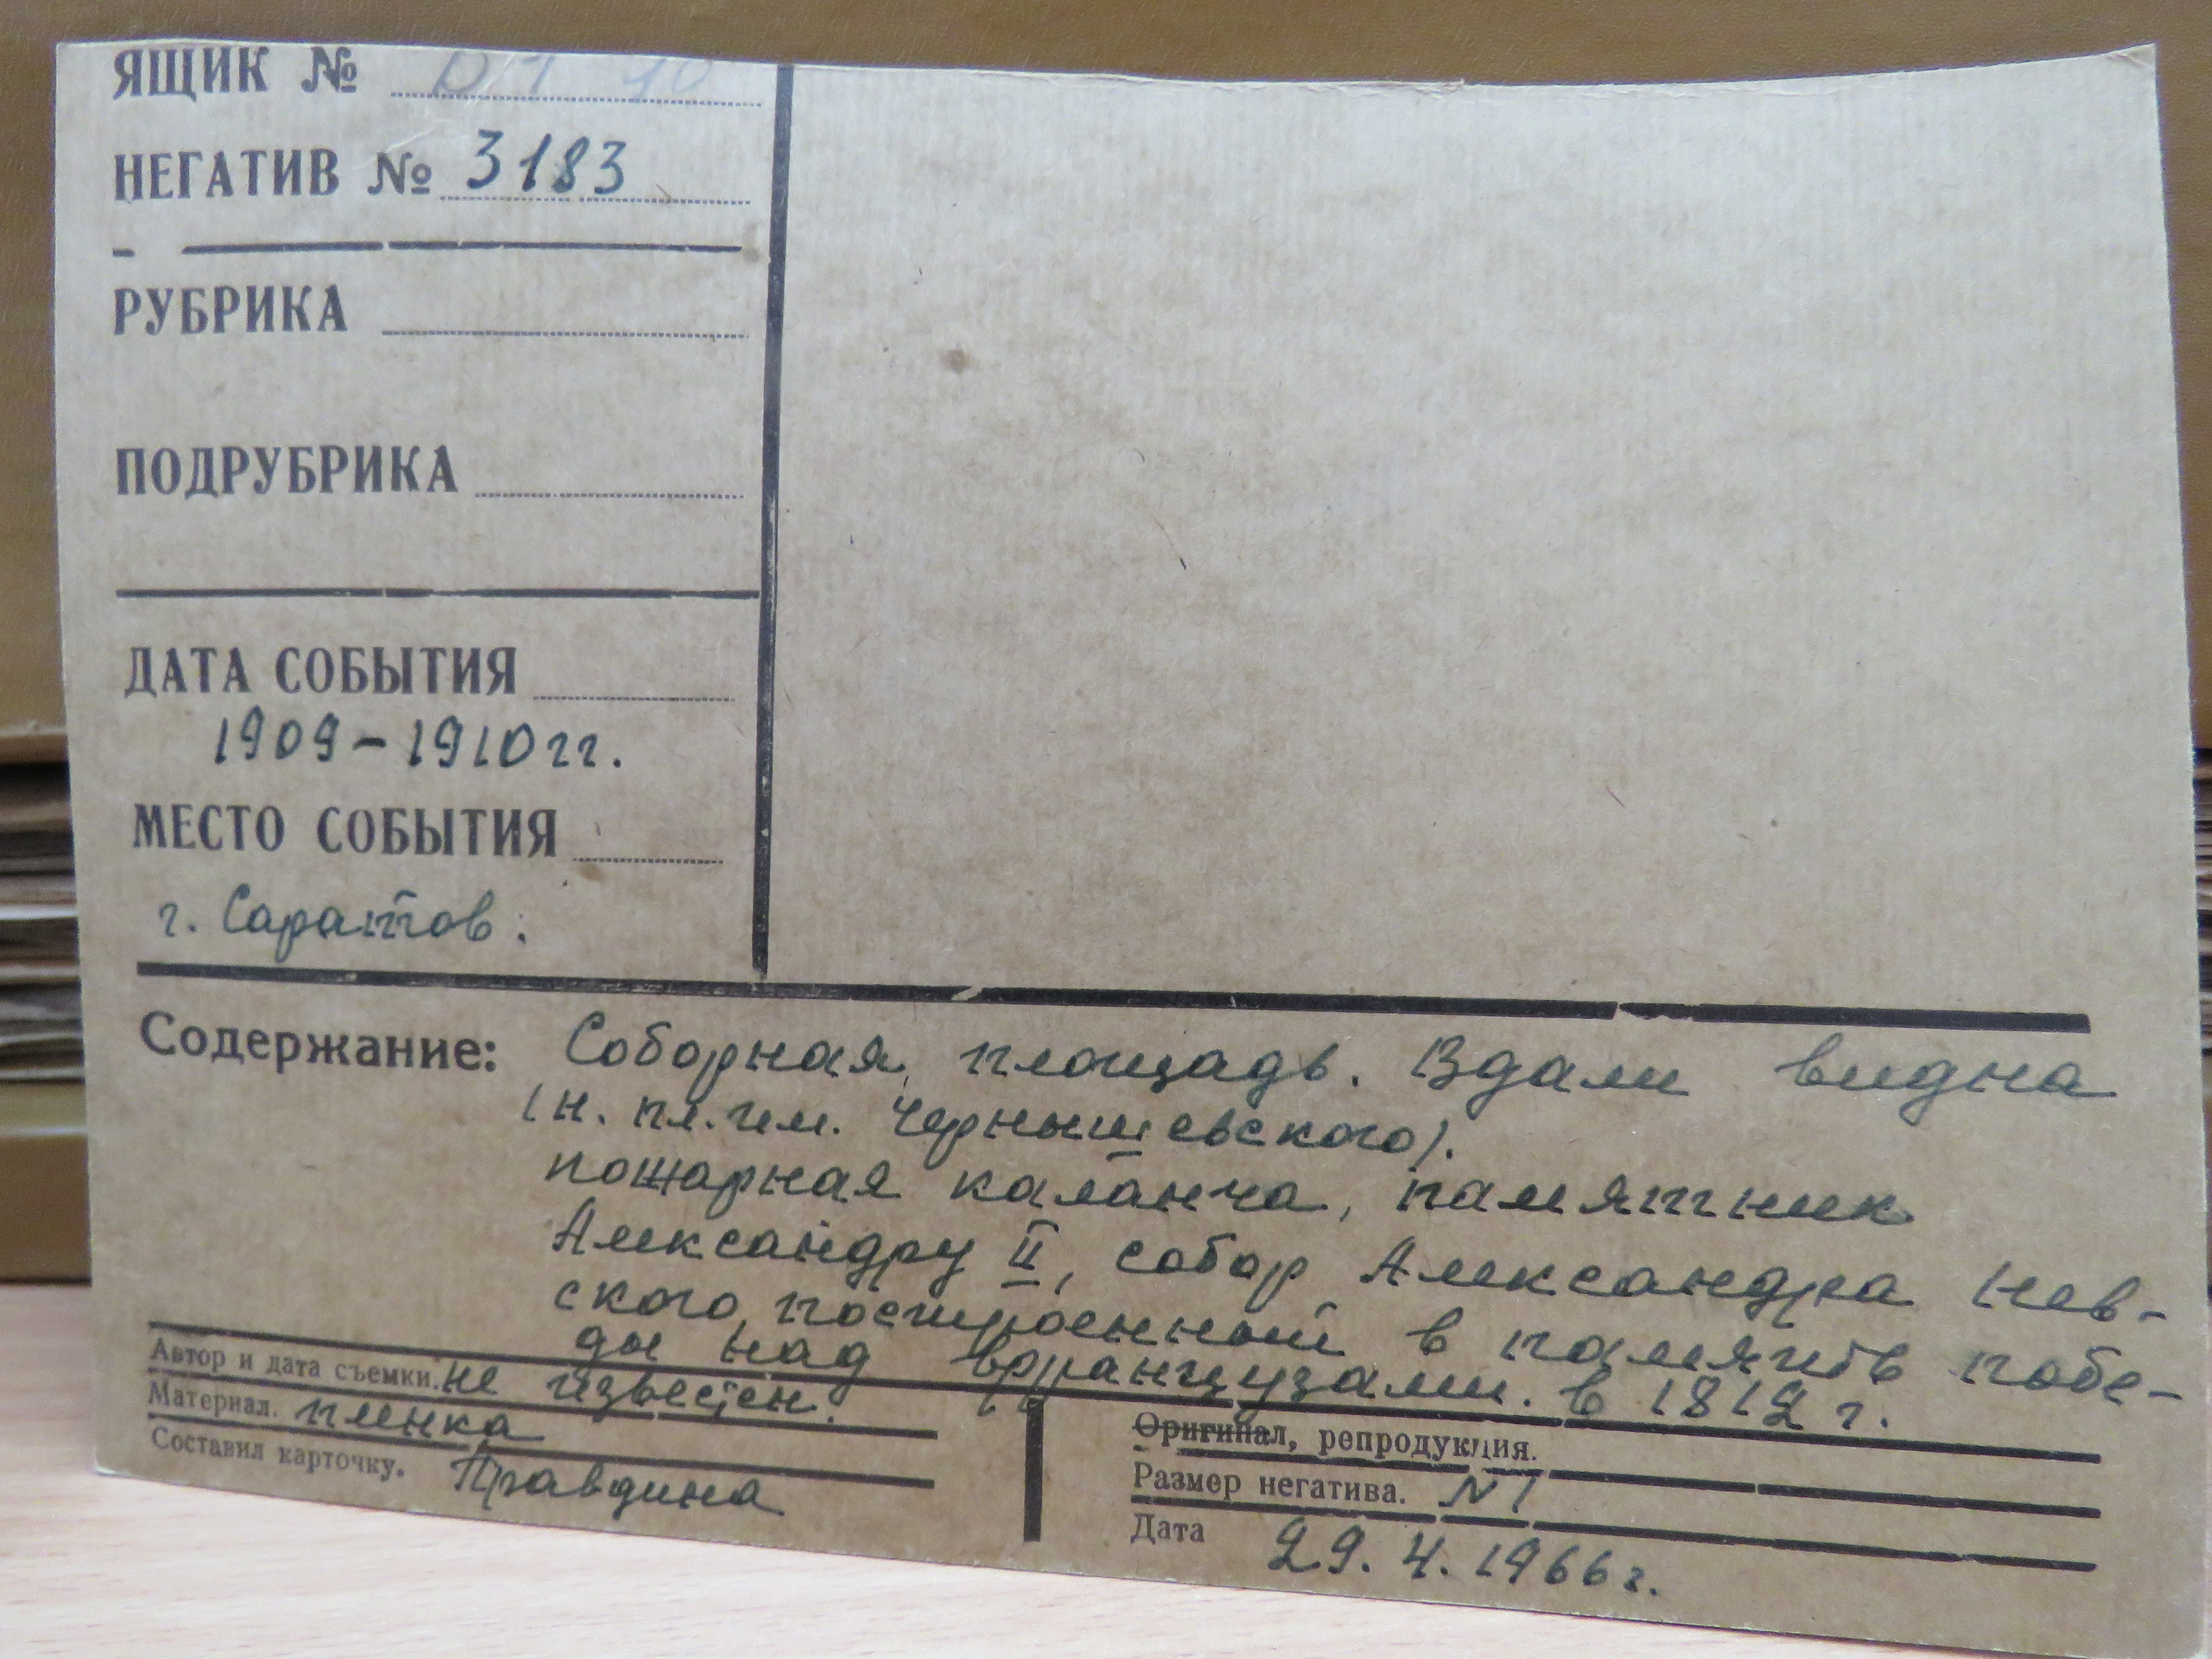 ЯЩИК №
НЕГАТИВ № 3183
РУБРИКА
ПОДРУБРИКА
ДАТА СОБЫТИЯ
1909-1910 гг.
МЕСТО СОБЫТИЯ
г. Саратов.
Содержание: Соборная площадь. Вдали видна
(н. пл. им. Чернышевского).
пожарная каланча, памятник
Александру II, собор Александра Нев-
ского, построенный в память побе-
ды над французами. в 1812 г.
Автор и дата съемки. не известен.
Материал. пленка
Составил карточку. Правдина
Оригинал, репродукция.
Размер негатива. N 1
Дата 29.4.1966 г.